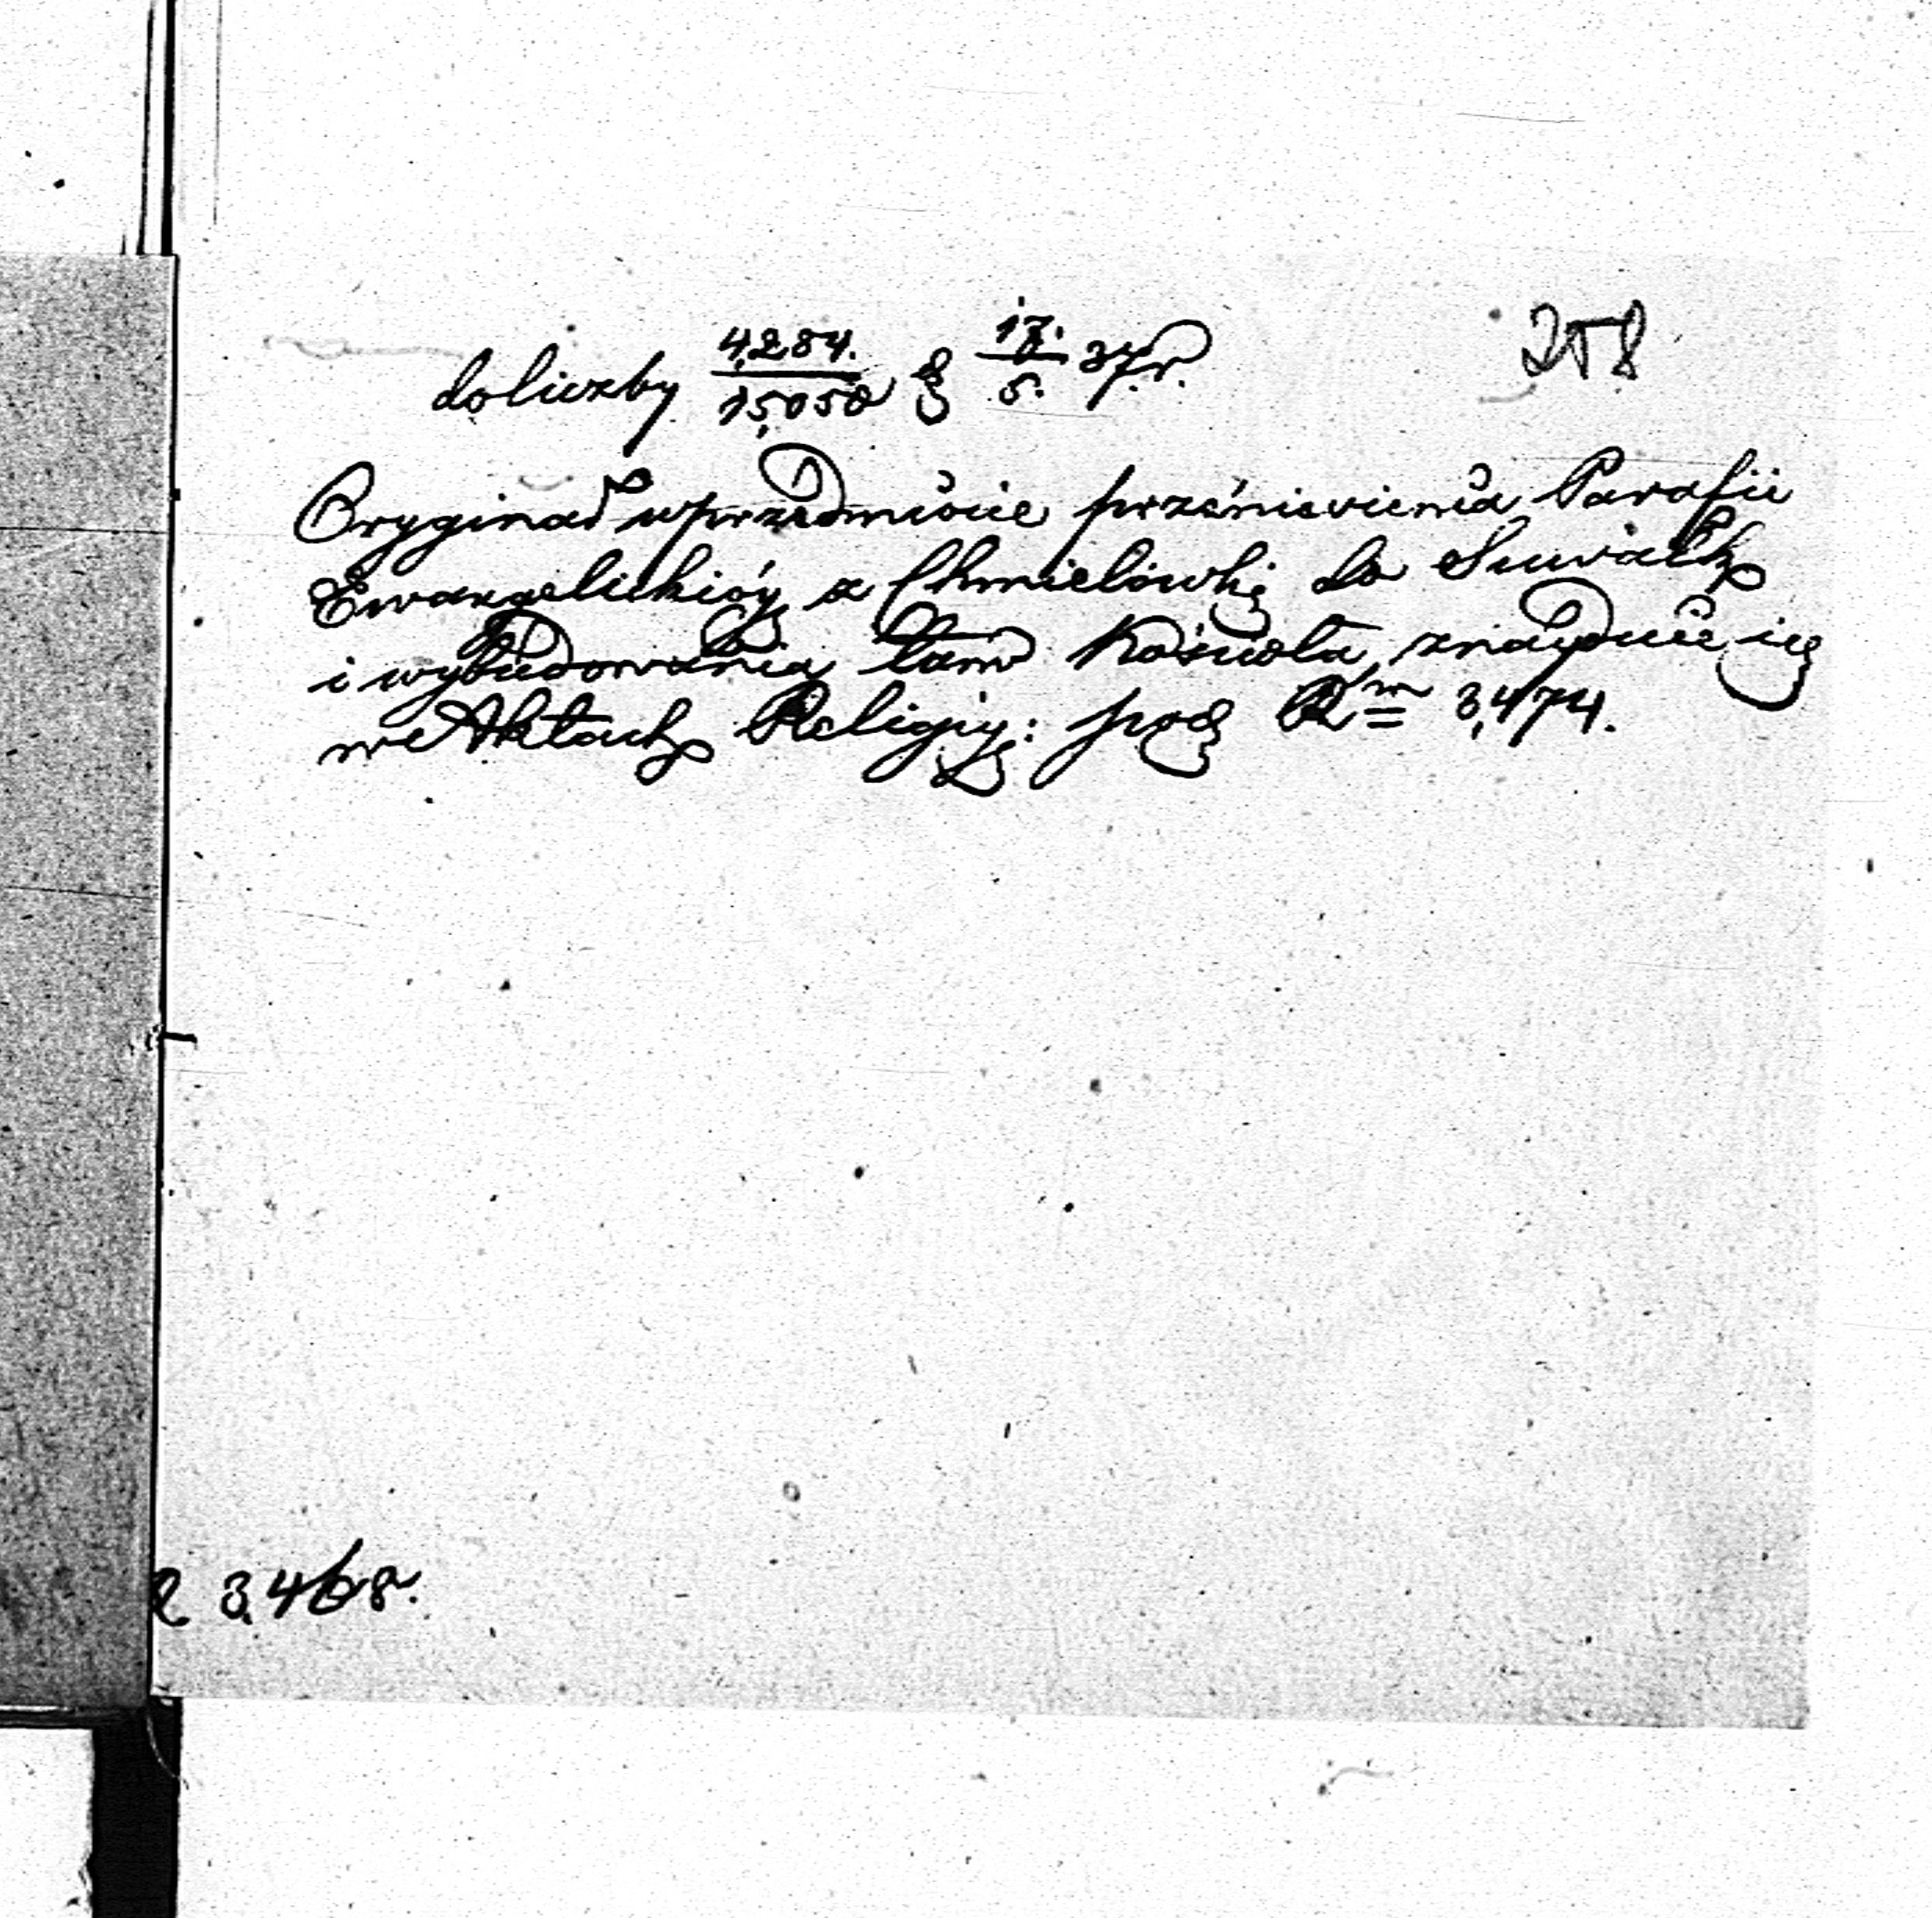 258
do liczby 4,284./15,050 z 17./5. 37 r.
Oryginał w przedmiocie przeniesienia Parafii
Ewangelickiéy z Chmielówki do Suwałk
i wybudowania tam Kościoła, znayduie się
we Aktach Religiy: pod R<sup>m</sup> 3,474.
R 3,468.